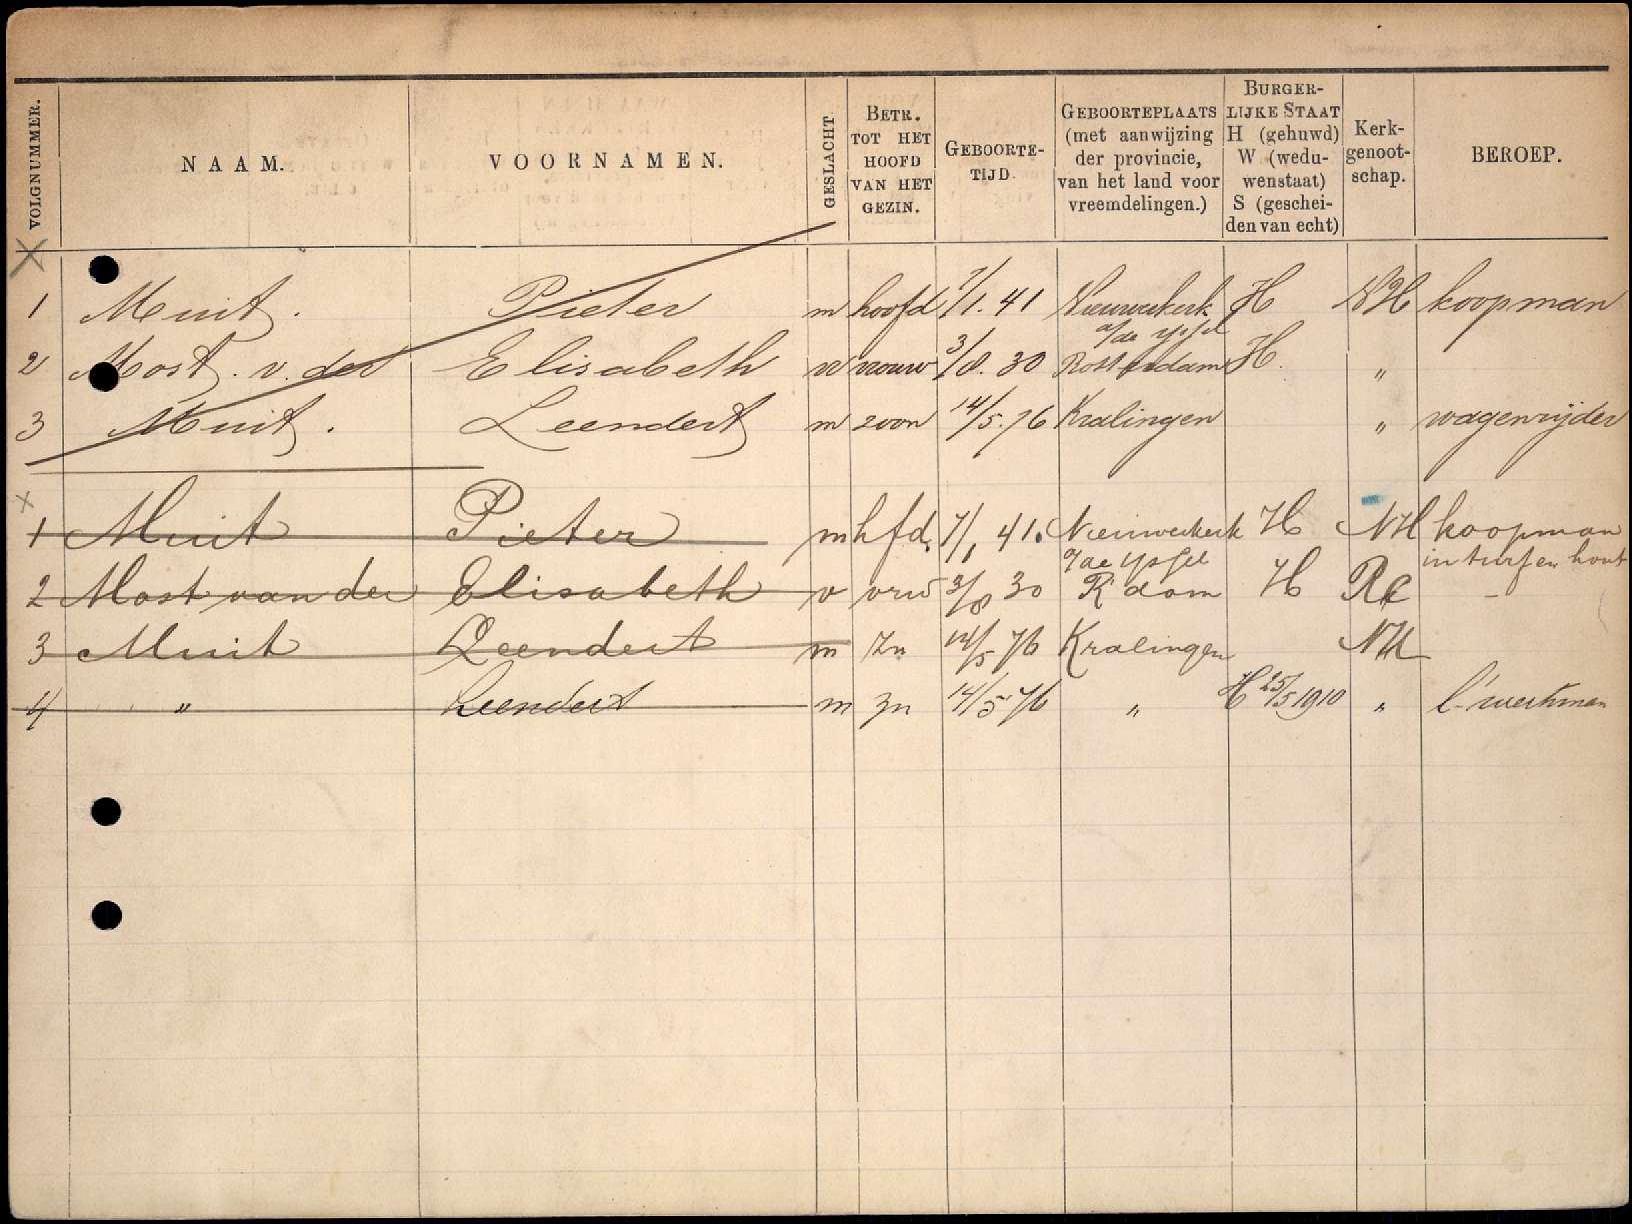 VOLGNUMMER. NAAM. VOORNAMEN. GESLACHT BETR. TOT HET HOOFD VAN HET GEZIN. GEBOORTE-TIJD. GEBOORTEPLAATS (met aanwijzing der provincie, van het land voor vreemdelingen.) BURGER-LIJKE STAAT H (gehuwd) W (wedu-wenstaat) S (geschei-den van echt) Kerk-genoot-schap. BEROEP.
1 Muit. Pieter m hoofd 7/1. 41 Nieuwerkerk H NH koopman
a/de ijssel
2 Most. v. der Elisabeth v vrouw 3/8. 30 Rotterdam H. "
3 Muit. Leendert m zoon 14/5. 76 Kralingen " wagenrijder
1 Muit Pieter m hfd. 7/1 41. Nieuwerkerk H NH koopman
a/de ijssel in turf en hout
2 Most van der Elisabeth v vrw 3/8 30 R'dam H RC -
3 Muit Leendert m zn 14/5 76 Kralingen NH
4 " Leendert m zn 14/5 76 " H 25/5 1910 " l-werkman